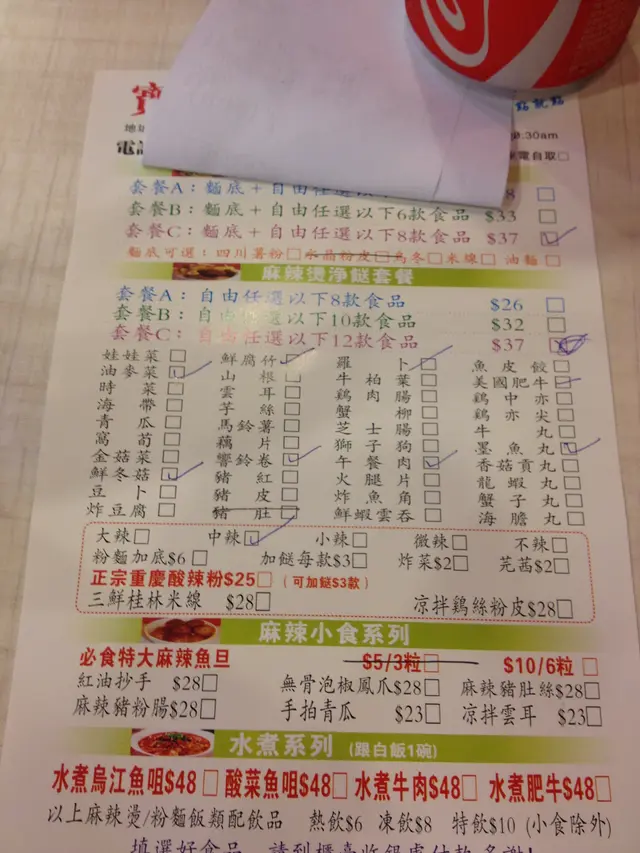 點就點
地
:30am
電
來電自取□
套餐A：麵底＋自由任選以下
套餐B：麵底＋自由任選以下6款食品 $33 □
套餐C：麵底＋自由任選以下8款食品 $37 □
麵底可選：四川薯粉□水晶粉皮□烏冬□米線□ 油麵□
麻辣燙淨餸套餐
套餐A：自由任選以下8款食品 $26 □
套餐B：自由任選以下10款食品 $32 □
套餐C：自由任選以下12款食品 $37 □
娃娃菜□ 鮮腐竹□ 羅卜□ 魚皮餃□
油麥菜□ 山根□ 牛柏葉□ 美國肥牛□
時菜□ 雲耳□ 鷄肉腸□ 鷄中亦□
海帶□ 芋絲□ 蟹柳□ 鷄亦尖□
青瓜□ 馬鈴薯□ 芝士腸□ 牛丸□
窩荀□ 藕片□ 獅子狗□ 墨魚丸□
金菇菜□ 響鈴卷□ 午餐肉□ 香菇貢丸□
鮮冬菇□ 豬紅□ 火腿片□ 龍蝦丸□
豆卜□ 豬皮□ 炸魚角□ 蟹子丸□
炸豆腐□ 豬肚□ 鮮蝦雲吞□ 海膽丸□
大辣□ 中辣□ 小辣□ 微辣□ 不辣□
粉麵加底$6□ 加餸每款$3□ 炸菜$2□ 芫茜$2□
正宗重慶酸辣粉$25□（可加餸$3款）
三鮮桂林米線 $28□ 凉拌鷄絲粉皮$28□
麻辣小食系列
必食特大麻辣魚旦 $5/3粒□ $10/6粒□
紅油抄手 $28□ 無骨泡椒鳳爪$28□ 麻辣豬肚絲$28□
麻辣豬粉腸$28□ 手拍青瓜 $23□ 凉拌雲耳 $23□
水煮系列（跟白飯1碗）
水煮烏江魚咀$48□ 酸菜魚咀$48□ 水煮牛肉$48□ 水煮肥牛$48□
以上麻辣燙/粉麵飯類配飲品 熱飲$6 凍飲$8 特飲$10（小食除外）
填選好食品，請到櫃臺收銀處付款,多謝!